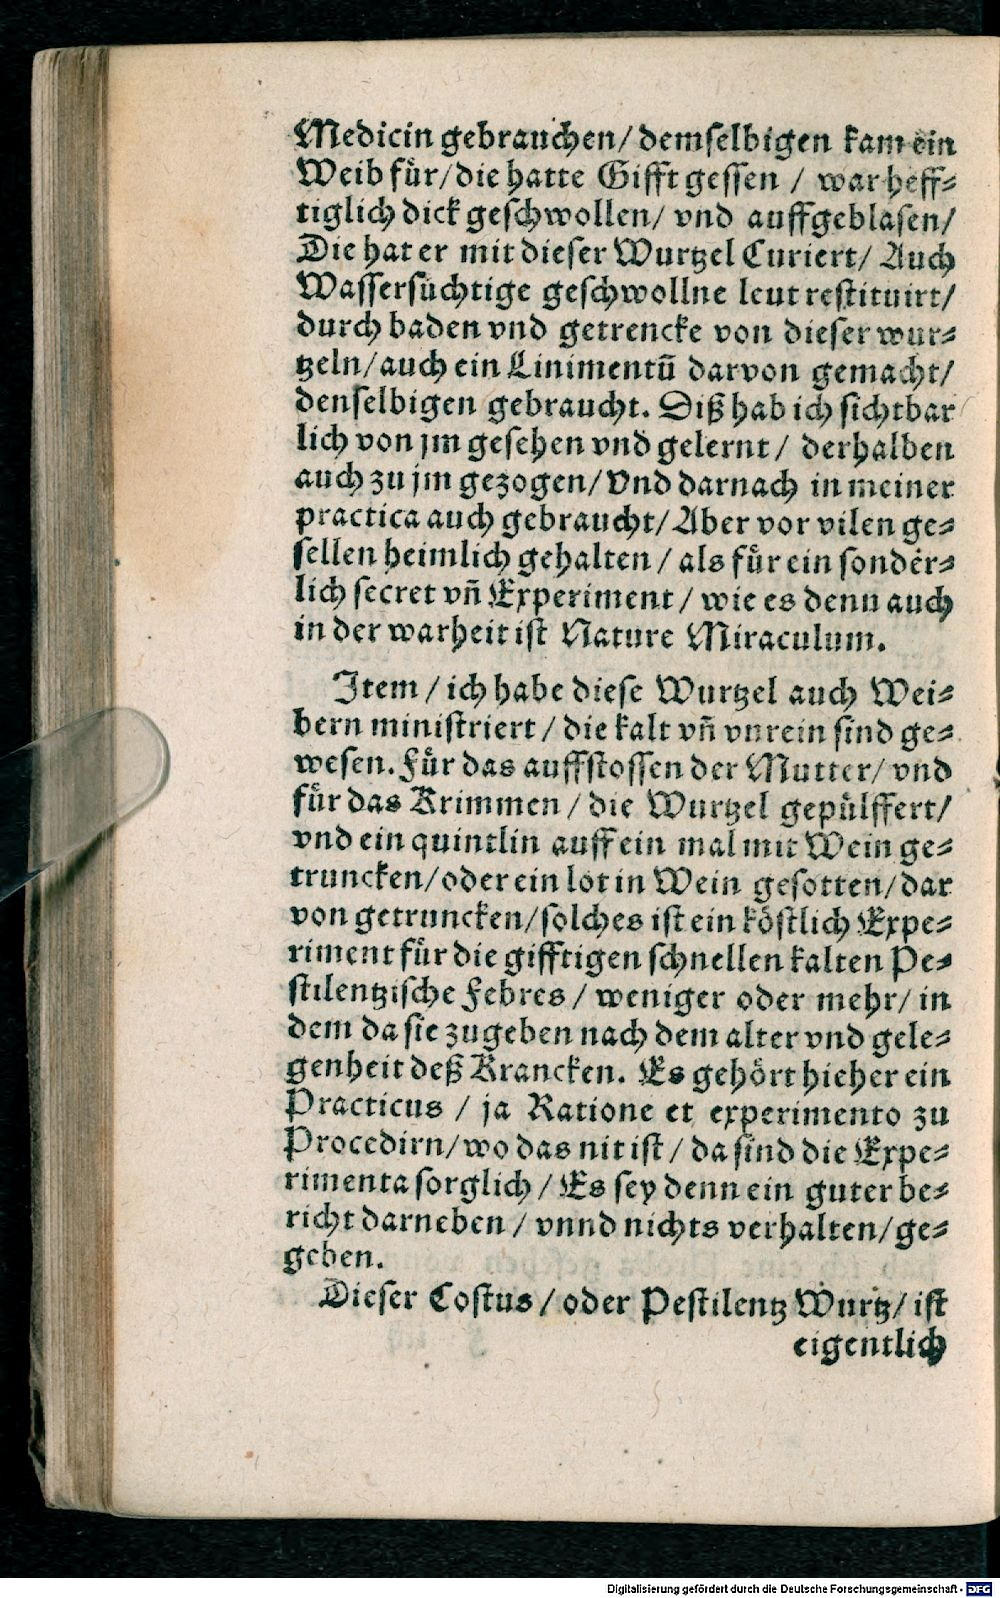 Medicin gebrauchen/ demselbigen kam ein
Weib für/ die hatte Gifft gessen / war heff⸗
tiglich dick geschwollen/ vnd auffgeblasen/
Die hat er mit dieser Wurtzel Curiert/ Auch
Wassersüchtige geschwollne leut restituirt/
durch baden vnd getrencke von dieser wur⸗
tzeln/ auch ein Linimentū darvon gemacht/
denselbigen gebraucht. Diß hab ich sichtbar
lich von jm gesehen vnd gelernt / derhalben
auch zu jm gezogen/ Vnd darnach in meiner
practica auch gebraucht/ Aber vor vilen ge⸗
sellen heimlich gehalten / als für ein sonder⸗
lich secret vn̄ Experiment / wie es denn auch
in der warheit ist Nature Miraculum.
Item / ich habe diese Wurtzel auch Wei⸗
bern ministriert / die kalt vn̄ vnrein sind ge⸗
wesen. Für das auffstossen der Mutter/ vnd
für das Krimmen / die Wurtzel gepülffert/
vnd ein quintlin auff ein mal mit Wein ge⸗
truncken/ oder ein lot in Wein gesotten/ dar
von getruncken/ solches ist ein köstlich Expe⸗
riment für die gifftigen schnellen kalten Pe⸗
stilentzische Febres / weniger oder mehr/ in
dem da sie zugeben nach dem alter vnd gele⸗
genheit deß Krancken. Es gehört hieher ein
Practicus / ja Ratione et experimento zu
Procedirn/ wo das nit ist / da sind die Expe⸗
rimenta sorglich / Es sey denn ein guter be⸗
richt darneben / vnnd nichts verhalten/ ge⸗
geben.
Dieser Costus / oder Pestilentz Wurtz/ ist
eigentlich
Digitalisierung gefördert durch die Deutsche Forschungsgemeinschaft - DFG